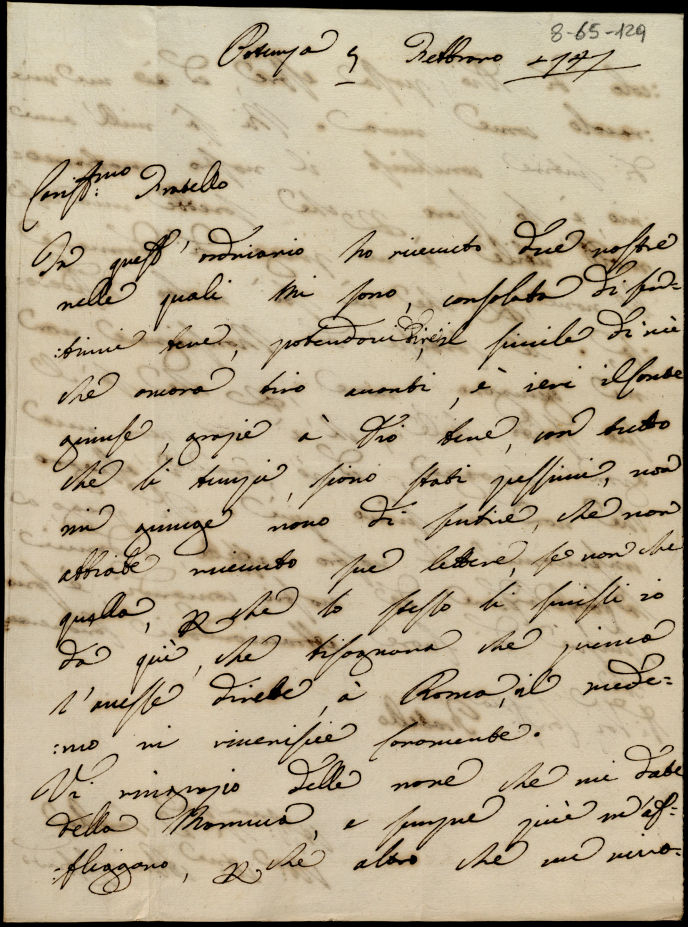 8-65-129
Potenza 5 Febbraro 1747
Cariss:mo Fratello
In quest' ordinario ho ricevuto due vostre
nelle quali mi sono consolata di sen=
:tirvi bene, potendovi dire il simile di me
che ancora tiro avanti, e ieri il Conte
giunse, grazie à Dio bene, con tutto
che li tempi, siono stati pessimi, non
mi giunge novo di sentire, che non
abbiate ricevuto sue lettere, se non che
quella, che lo stesso li scrissi io
da quì, che bisognava che prima
l'avesse dirette, à Roma, il mede=
:mo vi riverisce caramente.
Vi ringrazio delle nove che mi date
della Mamma, e sempre più m'af=
:fliggano, che altro che un mira=